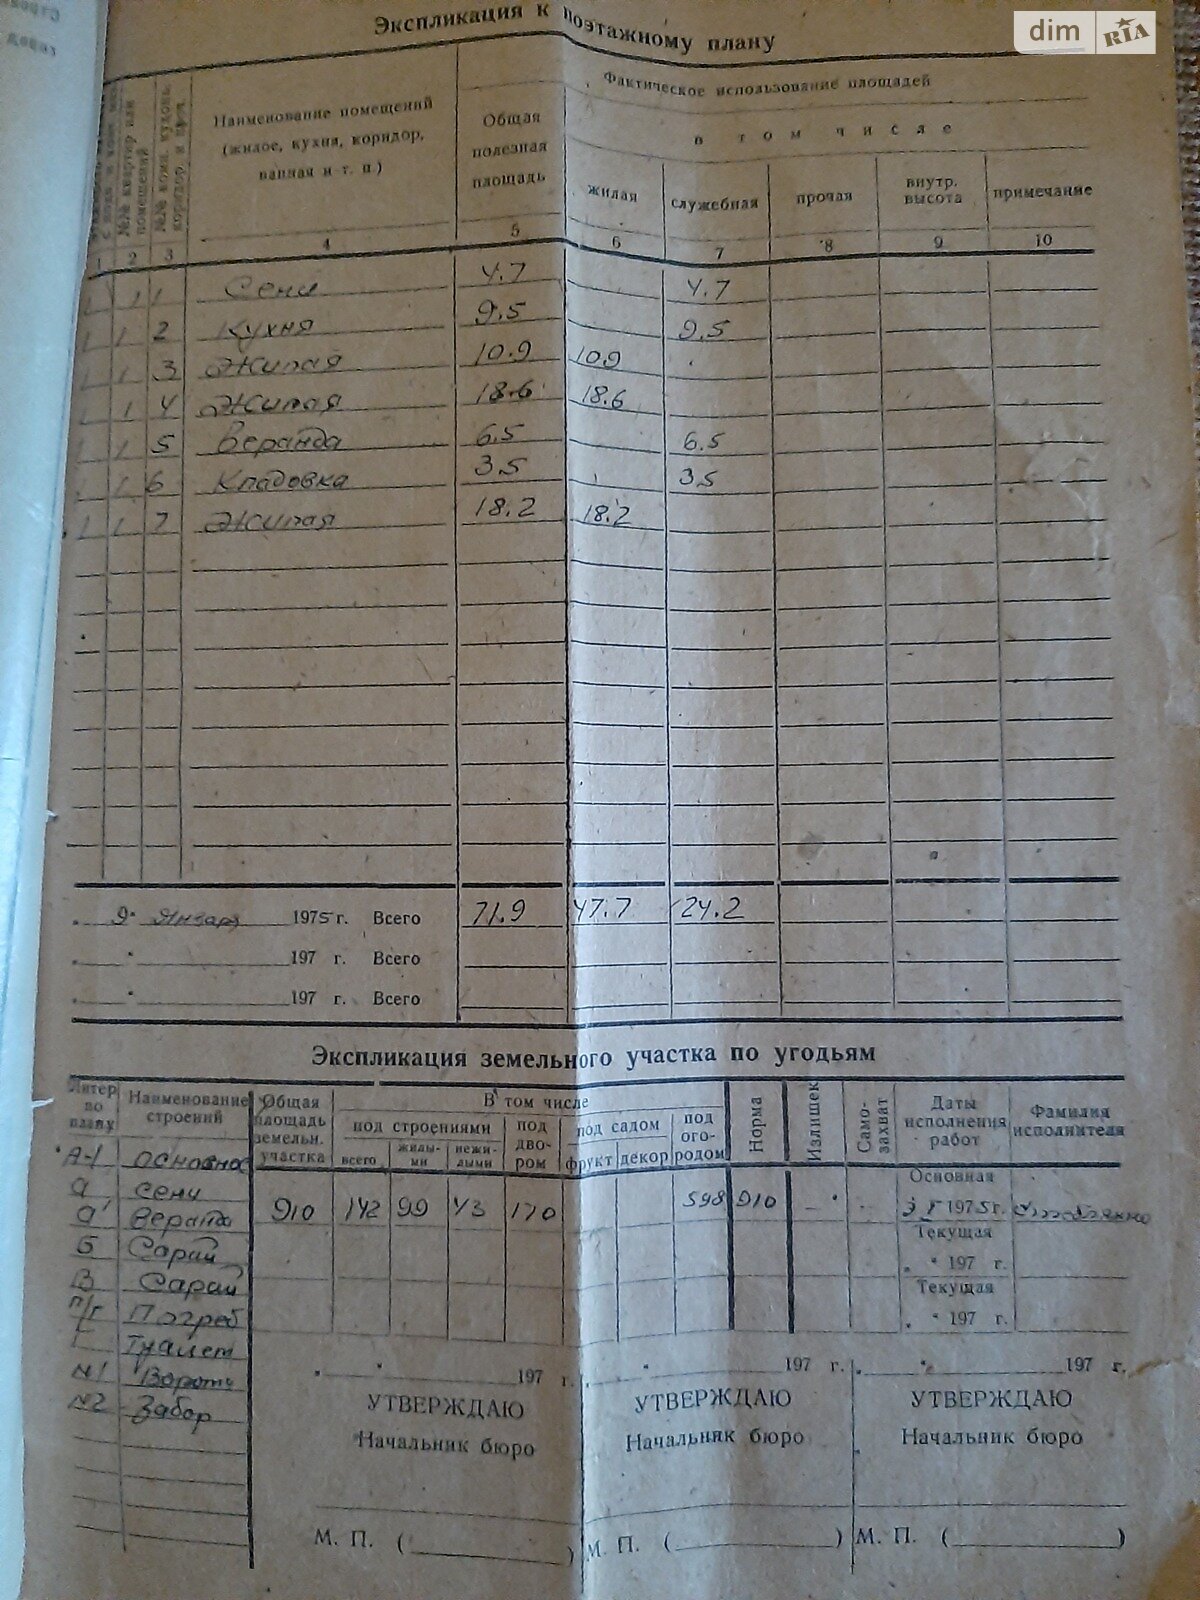 Экспликация к поэтажному плану
dim RIA
№№ квартир или помещений
№№ комн. кухонь, коридор. и проч.
Наименование помещений (жилое, кухня, коридор, ванная и т. п.)
Общая полезная площадь
Фактическое использование площадей
в том числе
жилая служебная прочая внутр. высота примечание
1 2 3 4 5 6 7 8 9 10
1 1 1 Сени 4.7 4.7
1 1 2 Кухня 9.5 9.5
1 1 3 Жилая 10.9 10.9
1 1 4 Жилая 18.6 18.6
1 1 5 Веранда 6.5 6.5
1 1 6 Кладовка 3.5 3.5
1 1 7 Жилая 18.2 18.2
„ 9 " Января 1975 г. Всего 71.9 47.7 24.2
„ " 197 г. Всего
„ " 197 г. Всего
Экспликация земельного участка по угодьям
Литер по плану
Наименование строений
Общая площадь земельн. участка
В том числе
под строениями
всего жилы-ми нежи-лыми
под дво-ром
под садом
фрукт декор
под ого-родом
Норма
Излишек
Само-захват
Даты исполнения работ
Фамилия исполнителя
А-1 основное
Основная
а сени
а' Веранда 910 142 99 43 170 598 910 1975 г.
Б Сарай
Текущая
„ " 197 г.
В Сарай
Текущая
п/г Погреб
„ " 197 г.
Туалет
№1 Ворота
„ " 197 г. „ " 197 г. „ " 197 г.
№2 Забор
УТВЕРЖДАЮ УТВЕРЖДАЮ УТВЕРЖДАЮ
Начальник бюро Начальник бюро Начальник бюро
М. П. ( ) М. П. ( ) М. П. ( )